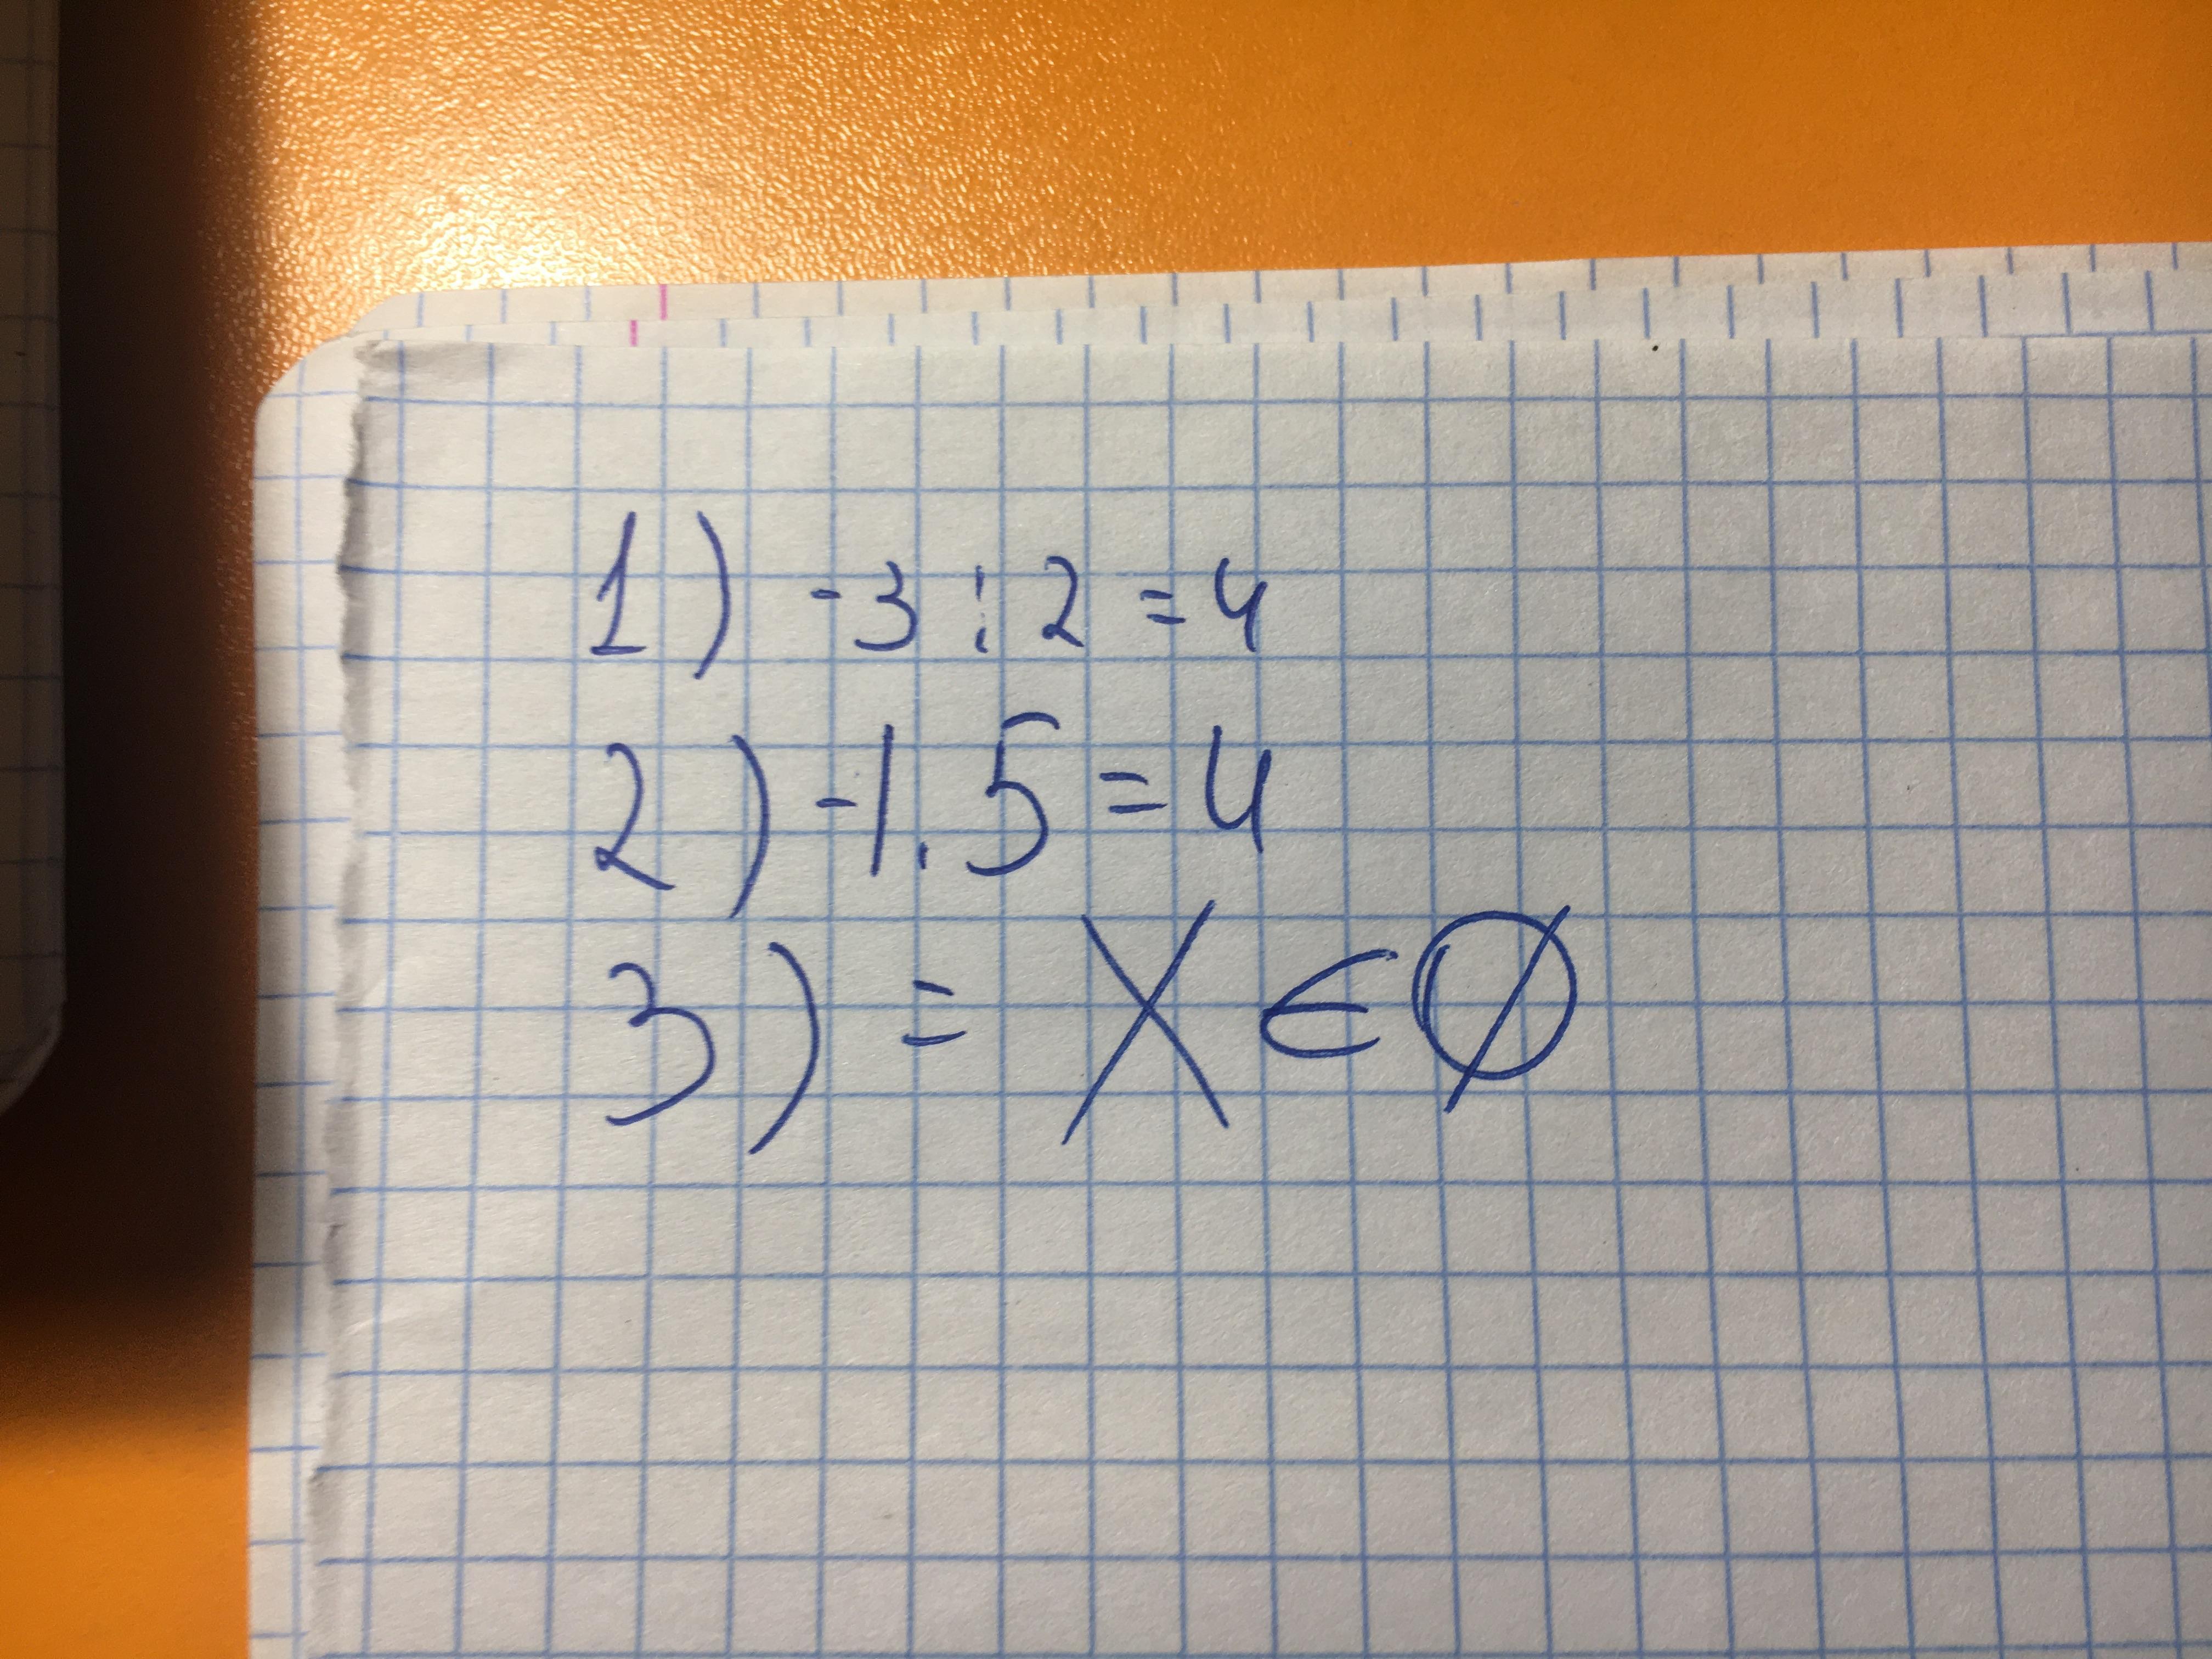 1) -3 : 2 = 4
2) -1.5 = 4
3) = X ∈ ∅